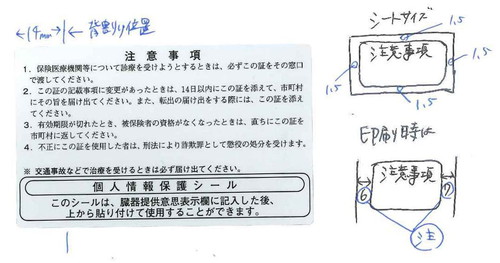 14mm 背割り位置
注意事項
1. 保険医療機関等について診療を受けようとするときは、必ずこの証をその窓口
で渡してください。
2. この証の記載事項に変更があったときは、14日以内にこの証を添えて、市町村
にその旨を届け出てください。また、転出の届け出をする際には、この証を添え
てください。
3. 有効期限が切れたとき、被保険者の資格がなくなったときは、直ちにこの証を
市町村に返してください。
4. 不正にこの証を使用した者は、刑法により詐欺罪として懲役の処分を受けます。
※ 交通事故などで治療を受けるときは必ず届け出てください。
個人情報保護シール
このシールは、臓器提供意思表示欄に記入した後、
上から貼り付けて使用することができます。
シートサイズ
1.5
注意事項
1.5
1.5
1.5
印刷時は
注意事項
注